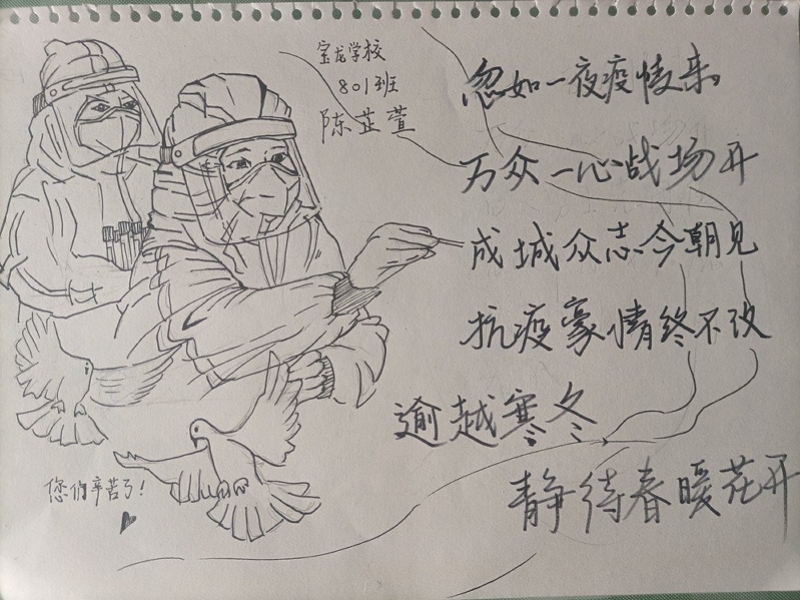 宝龙学校
801班
陈芷萱
忽如一夜疫情来
万众一心战场开
成城众志今朝见
抗疫豪情终不改
逾越寒冬
静待春暖花开
您们辛苦了!